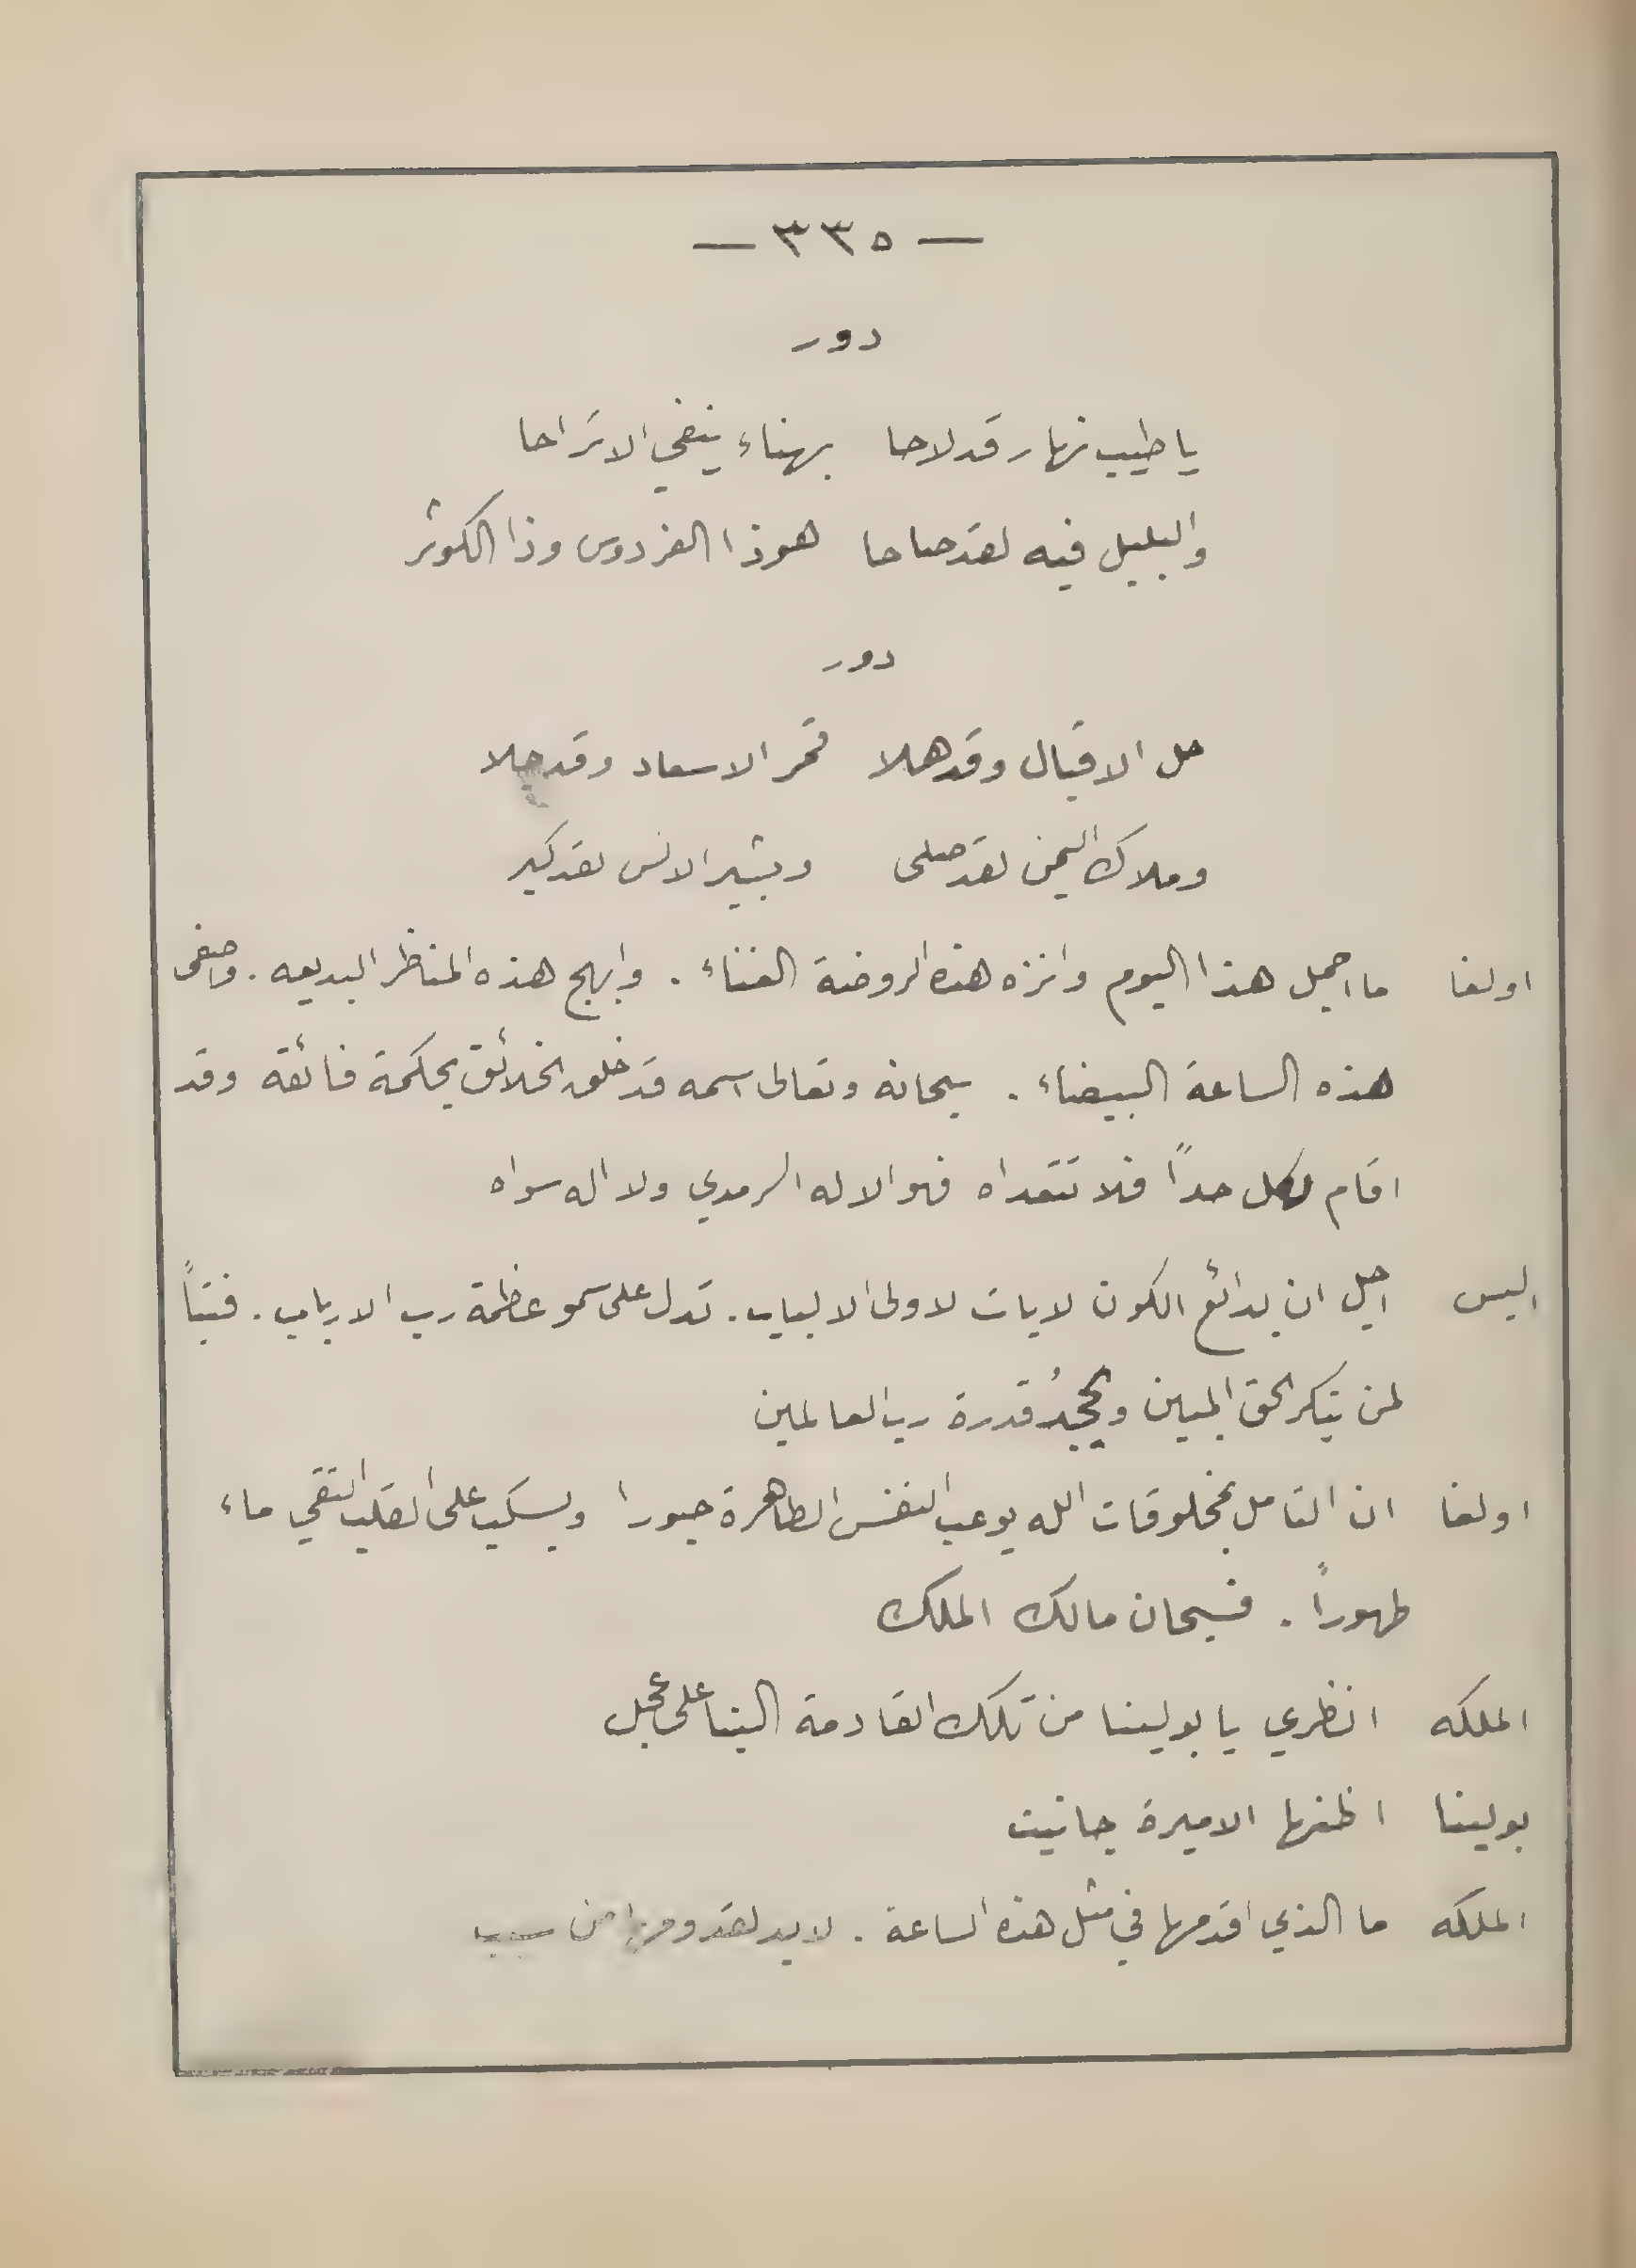 — ٣٣٥ —
دور
يا طيب نهار قد لاحا بهناء ينفي الاتراحا
والبلبل فيه لقد صاحا هوذا الفردوس وذا الكوثر
دور
حل الاقبال وقد هلا قمر الاسعاد وقد جلا
وملاك اليمن لقد صلى وبشير الانس لقد كبر
اولغا ما اجمل هذا اليوم وانزه هذه الروضة الغناء . وابهج هذه المناظر البديعه . واصفى
هذه الساعة البيضاء . سبحانه وتعالى اسمه قد خلق الخلائق بحكمة فائقة وقد
اقام لكل حداً فلا تتعداه فهو الاله السرمدي ولا اله سواه
اليس اجل ان بدائع الكون لايات لاولى الالباب . تدل على سمو عظمة رب الارباب . فتباً
لمن ينكر الحق المبين ويجحدُ قدرة رب العالمين
اولغا ان التامل بمخلوقات الله يوعب النفس الطاهرة حبورا ويسكب على القلب النقي ماء
طهوراً . فسبحان مالك الملك
الملكه انظري يا بولينا من تلك القادمة الينا على عجل
بولينا اظنها الاميرة جانيت
الملكه ما الذي اقدمها في مثل هذه الساعة . لابد لقدومها من سبب